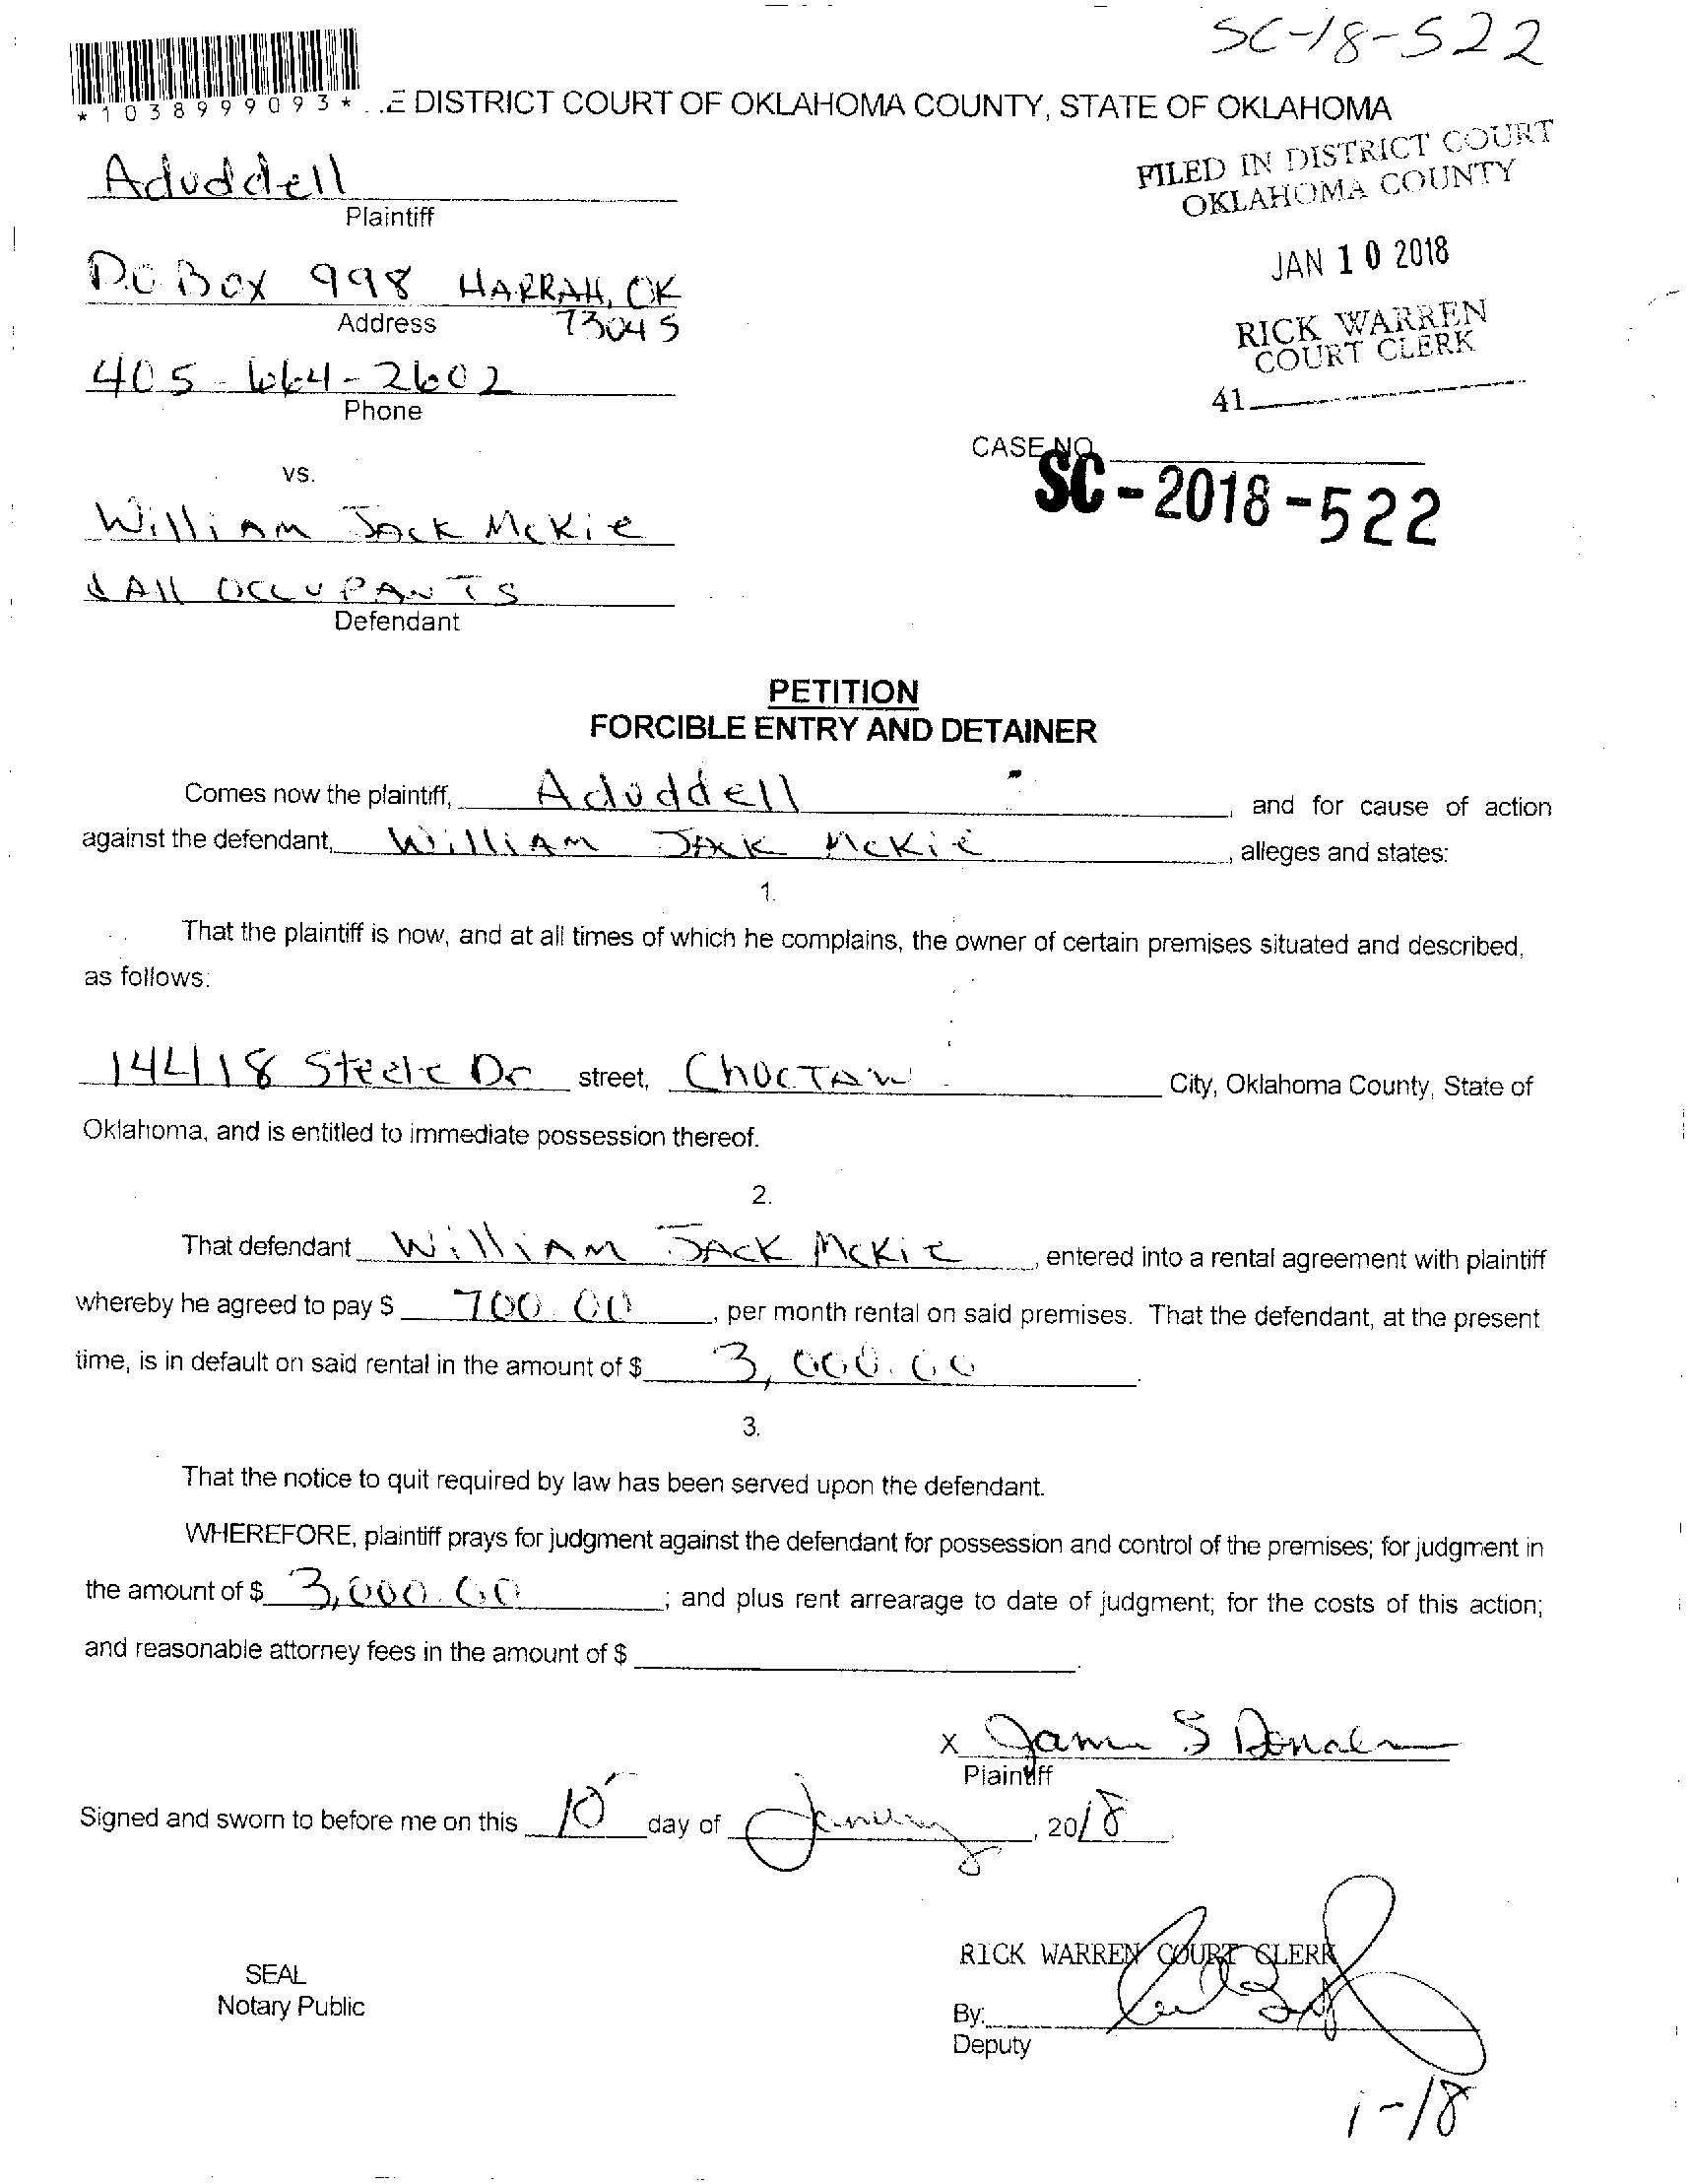 SC-18-522
*1038999093* .E DISTRICT COURT OF OKLAHOMA COUNTY, STATE OF OKLAHOMA
FILED IN DISTRICT COURT
OKLAHOMA COUNTY
Aduddell
Plaintiff
JAN 10 2018
P.O Box 998 HARRAH, OK
Address 73045
RICK WARREN
COURT CLERK
405-664-2602
Phone
41
CASE NO.
SC-2018-522
vs.
William Jack McKie
& All OCCUPANTS
Defendant
PETITION
FORCIBLE ENTRY AND DETAINER
Comes now the plaintiff, Aduddell, and for cause of action
against the defendant, William Jack McKie, alleges and states:
1.
That the plaintiff is now, and at all times of which he complains, the owner of certain premises situated and described,
as follows:
14418 Steele Dr street, Choctaw City, Oklahoma County, State of
Oklahoma, and is entitled to immediate possession thereof.
2.
That defendant William JACK McKie, entered into a rental agreement with plaintiff
whereby he agreed to pay $ 700.00, per month rental on said premises. That the defendant, at the present
time, is in default on said rental in the amount of $ 3,000.00.
3.
That the notice to quit required by law has been served upon the defendant.
WHEREFORE, plaintiff prays for judgment against the defendant for possession and control of the premises; for judgment in
the amount of $ 3,000.00; and plus rent arrearage to date of judgment; for the costs of this action;
and reasonable attorney fees in the amount of $ .
X
Plaintiff
Signed and sworn to before me on this 10 day of January, 2018
RICK WARREN COURT CLERK
SEAL
Notary Public
By:
Deputy
1-18